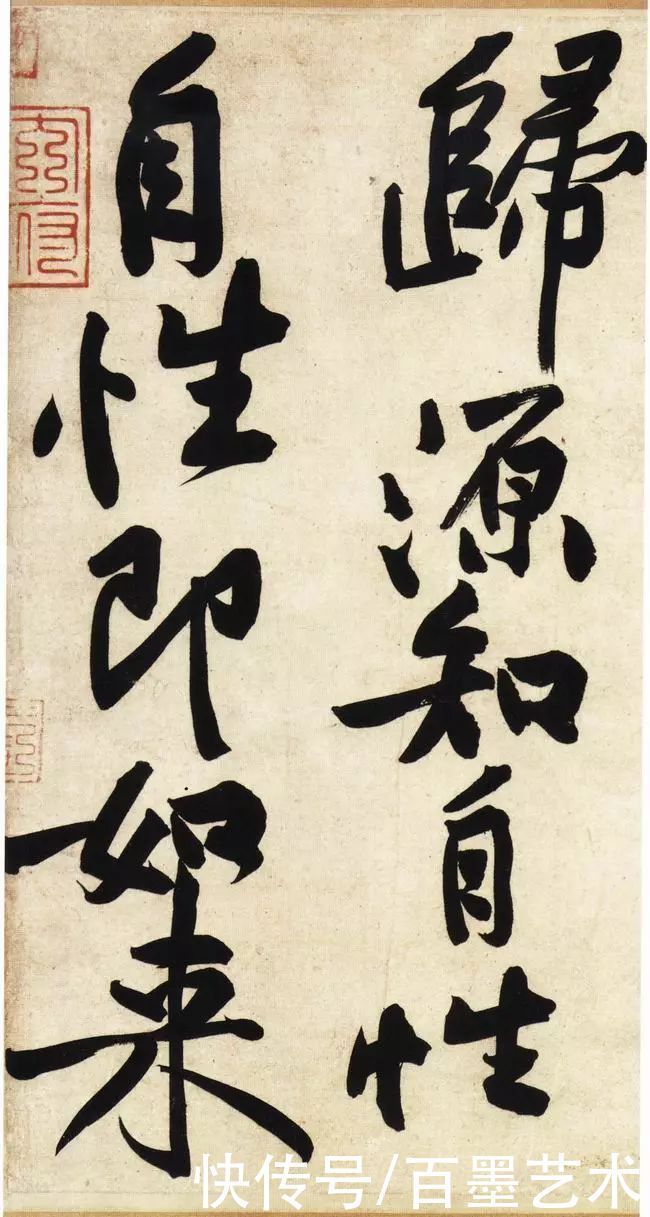 歸源知自性
自性即如来
快传号/百墨艺术